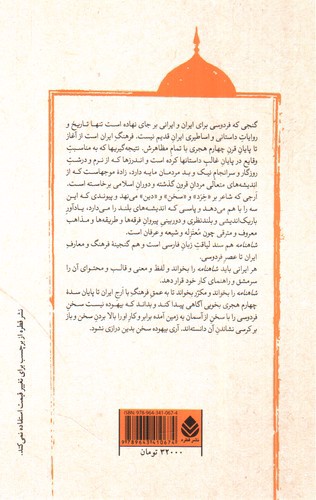 گنجی که فردوسی برای ایران و ایرانی بر جای نهاده است تنها تاریخ و
روایات داستانی و اساطیری ایران قدیم نیست. فرهنگ ایران است از آغاز
تا پایان قرن چهارم هجری با تمام مظاهرش. نتیجه‌گیریها که به مناسبت
وقایع در پایان غالب داستانها کرده است و اندرزها که از نرم و درشتِ
روزگار و سرانجام نیک و بد مردمان مایه دارد، زادهٔ موجهاست که از
اندیشه‌های متعالی مردانِ قرنِ گذشته و دورانِ اسلامی برخاسته است.
ارجی که شاعر بر «خِرَد» و «سخن» و «دین» می‌نهد و پیوندی که این
سه را با هم می‌دهد و پاسی که اندیشه‌های بلند را می‌دارد، یادآورِ
باریک‌اندیشی و بلندنظری و دوربینی پیروان فرقه‌ها و طریقه‌ها و مذاهب
معروف و مترقی چون مُعتزِله و شیعه و عرفان است.
شاهنامه هم سند لیاقتِ زبان فارسی است و هم گنجینهٔ فرهنگ و معارفِ
ایران تا عصر فردوسی.
هر ایرانی باید شاهنامه را بخواند و لفظ و معنی و قالب و محتوای آن را
سرمشق و راهنمای کار خود قرار دهد.
شاهنامه را بخواند و مکرّر بخواند تا به عمقِ فرهنگِ با ارجِ ایران تا پایان سدهٔ
چهارم هجری بخوبی آگاهی پیدا کند و بداند که بیهوده نیست سخنِ
فردوسی را با سخن از آسمان به زمین آمده برابر و کارِ او را بالا بردنِ سخن و باز
بر کرسی نشاندنِ آن دانسته‌اند. آری بیهوده سخن بدین درازی نشود.
نشر قطره از برچسب برای تغییر قیمت استفاده نمی‌کند.
ISBN: 978-964-341-067-4
9789643410674
نشر قطره
۳۲۰۰۰ تومان